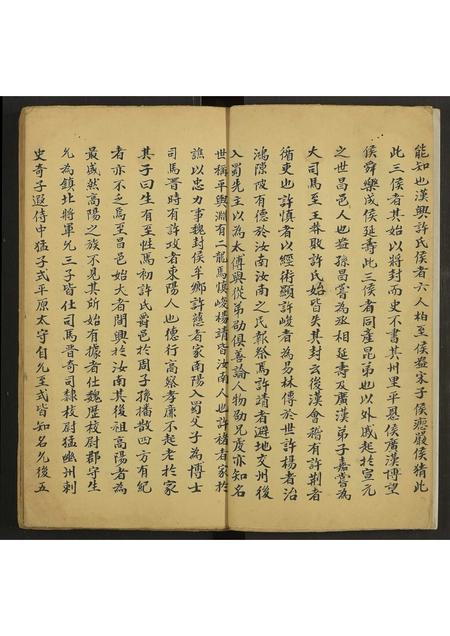 能知也漢興許氏侯者六人柏至侯盎宋子侯瘛嚴侯猜此
此三侯者其始以將封而史不書其州里平恩侯廣漢博望
侯舜樂成侯延壽此三侯者同產昆弟也以外戚起於宣元
之世昌邑人也盎孫昌嘗為丞相延壽及廣漢弟子嘉嘗為
大司馬至王莽敗許氏始皆失其封云後漢會稽有許荆者
循吏也許慎者以經術顯許峻者為易林傳於世許楊者治
鴻隙陂有德於汝南汝南之民報祭焉許靖者避地交州後
入蜀先主以為太傅與從弟劭俱善論人物劭兄虔亦知名
世稱平輿淵有二龍焉慎峻楊靖皆汝南人也許褚者家於
譙以忠力事魏封侯牟鄉許慈者家南陽入蜀父子為博士
司馬晉時有許孜者東陽人也德行高察孝廉不起老於家
其子曰生有至性焉初許氏爵邑於周子孫播散四方有紀
者亦不乏焉至昌邑始大者間興於汝南其後祖高陽者為
最盛然高陽之族不見其所始有據者仕魏歷校尉郡守生
允為鎮北將軍允三子皆仕司馬晉奇司隸校尉猛幽州刺
史奇子遐侍中猛子式平原太守自允至式皆知名允後五